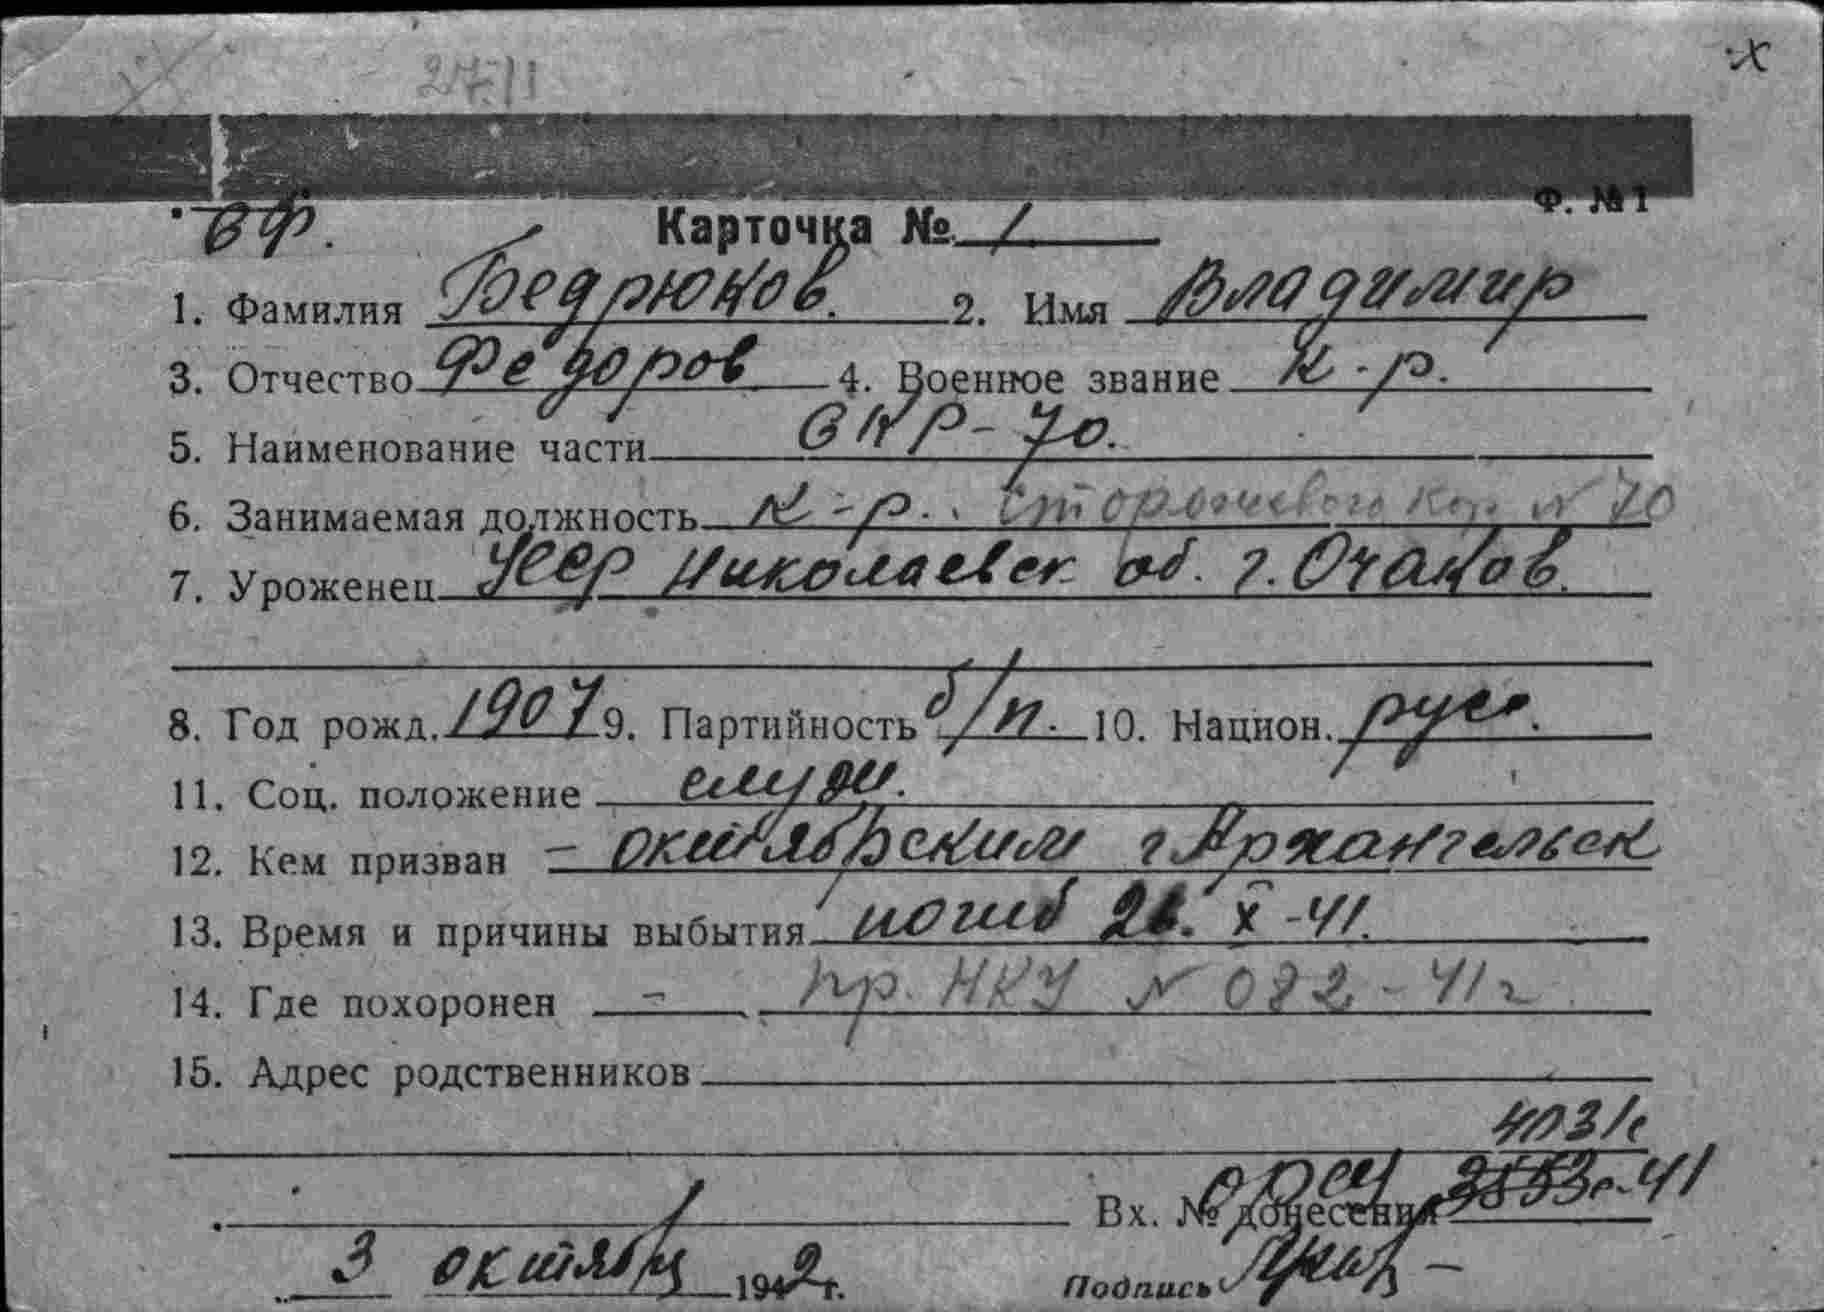 27/I
х
Ф. №1
СФ. Карточка № 1
1. Фамилия Бедрюков. 2. Имя Владимир
3. Отчество Федоров 4. Военное звание К-р.
5. Наименование части СКР-70.
6. Занимаемая должность К-р. Сторожевого Кор. N 70
7. Уроженец УССР Николаевск об. г. Очаков.
8. Год рожд. 1907 9. Партийность б/п. 10. Национ. русс.
11. Соц. положение служ.
12. Кем призван - Октябрьским г Архангельск
13. Время и причины выбытия погиб 26. X -41.
14. Где похоронен - пр. НКУ N 082-41г
15. Адрес родственников
403/с
Вх. № донесения ОРСУ 3553с-41
3 октября 1942г. Подпись